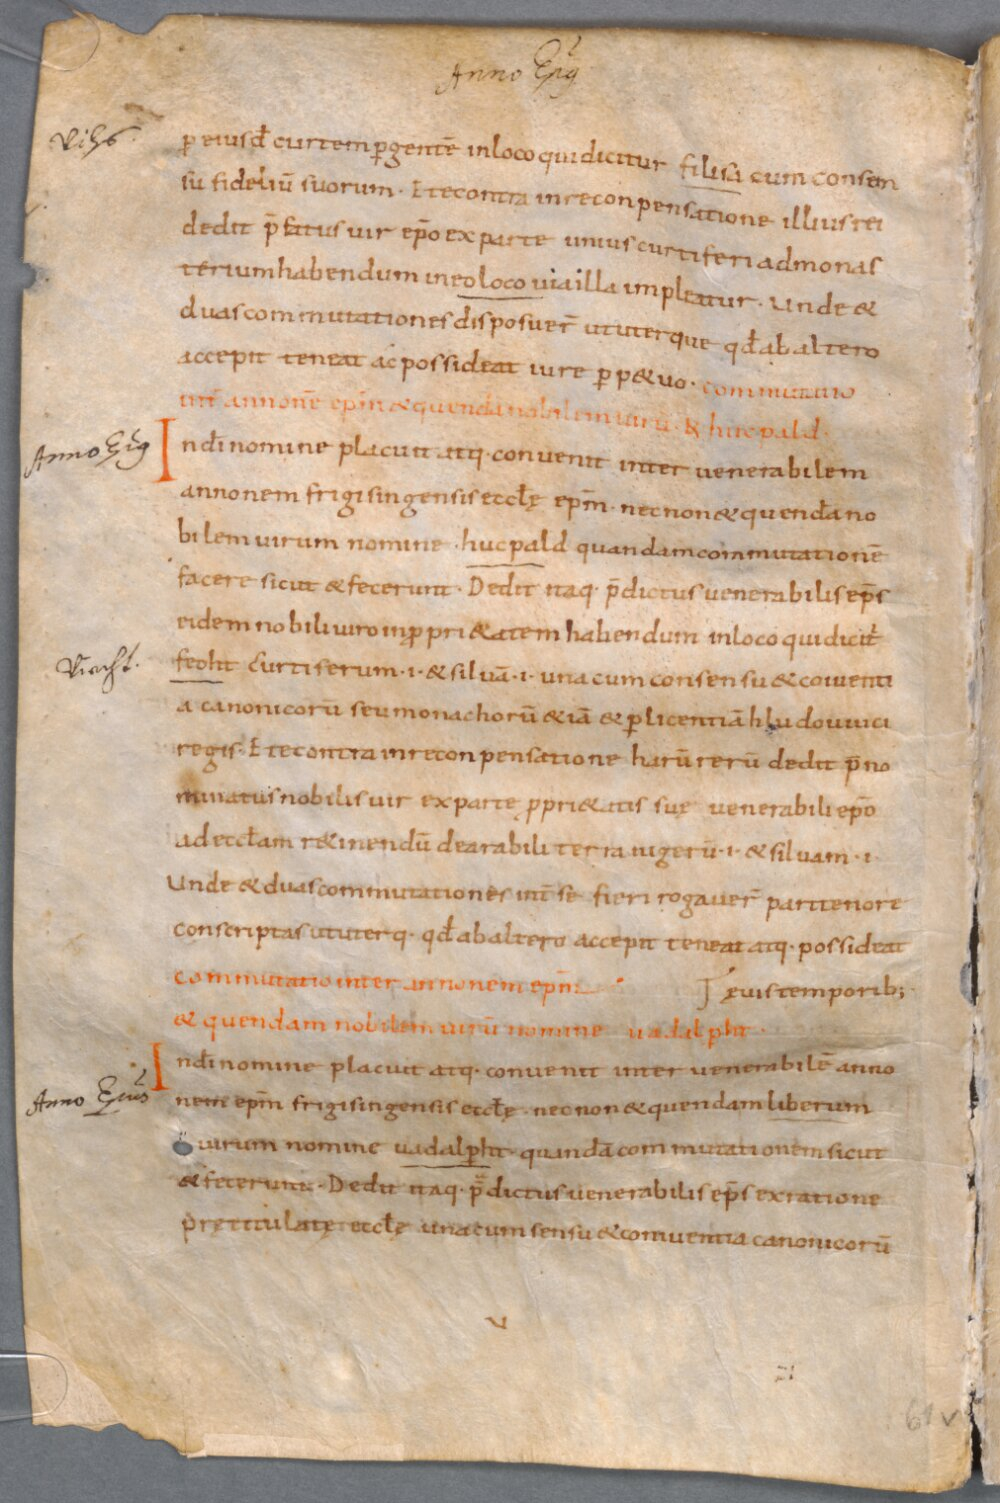 Anno Ep̄g
Vihs.
p̱ eiusd̄ curtem p̱gentē in loco qui dicitur filisa cum consen
sū fideliū suorum · Et econtra in reconpensatione illius rei
dedit p̄fatus uir ep̄o ex parte unius curtiferi ad monas
terium habendum in eo loco ui a illa impleatur · Unde &
duas commutationes disposuer̄ ut uterque qd̄ ab altero
accepit teneat ac possideat iure p̱p&uo · commutatio
int̄ annonē ep̄m & quendā nobilem uirū · N hucpald ·
Anno
Ind̄i nomine placuit atq · conuenit inter venerabilem
annonem frigisingensis eccl̄ę ep̄m · necnon & quend̄a no
bilem uirum nomine · hucpald quandam commutationē
facere sicut & fecerunt · Dedit itaq · p̄dictus uenerabilis ep̄s
eidem nobili uiro in p̱pri&atem habendum in loco qui dicit̄
Viecht.
feoht curtiferum · i · & siluā · i · una cum consensu & coniuenti
a canonicorū seu monachorū & iā & p̱ licentiā hludouuici
regis · Et econtra in reconpensatione harū rerū dedit p̄no
minatus nobilis uir ex partę p̱pri&atis suę venerabili ep̄o
ad eccl̄am r&inendū de arabili terra iugerū · i · & siluam · i ·
Unde & duas commutationes int̄ se fieri rogauer̄ pari tenore
conscriptas ut uterq · qd̄ ab altero accepit teneat atq · possideat
commutatio inter annonem ep̄m
ęuis temporib;
& quendam nobilem uirū nomine uadalp̱ht ·
Ind̄i nomine placuit atq · conuenit inter uenerabilē anno
Anno Eius
nem ep̄m frigisingensis eccl̄ę · necnon & quendam liberum
uirum nomine uadalp̱ht · quandā commutationem sicut
& fecerunt · Dedit itaq · p̄dictus uenerabilis ep̄s ex ratione
pretitulatę eccl̄ę una cum sensu & coniuentia canonicorū
v
61v